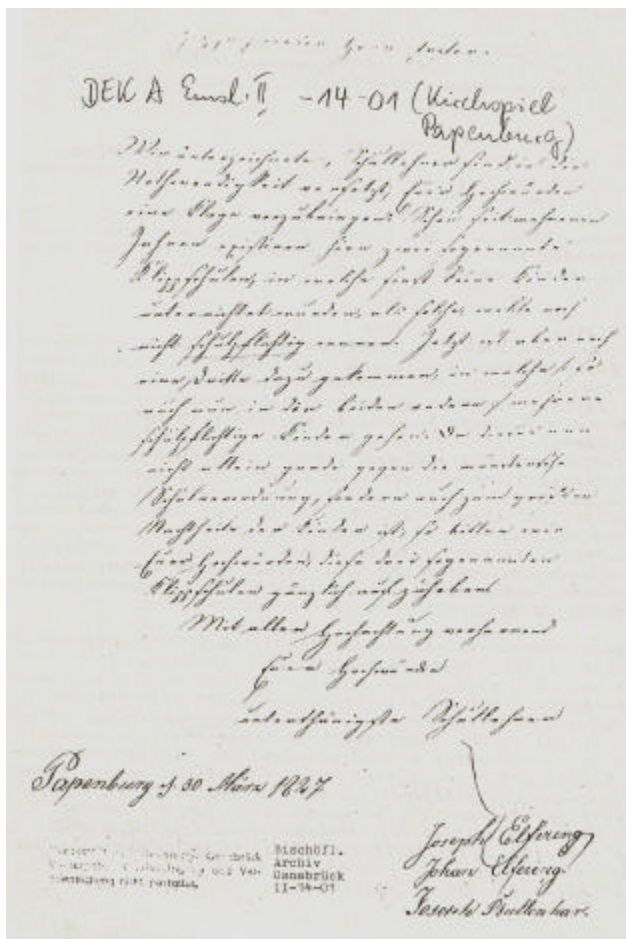 DEK A Emsl. II, -14-01 (Kirchspiel
Papenburg)
Wir unterzeichnete, Schullehrer sind in die
Nothwendigkeit versetzt, Euer Hochwürden
eine Klage vorzubringen. Schon seit mehreren
Jahren existiren hier zwei sogenannte
Klippschulen, in welche sonst keine Kinder
unterrichtet wurden, als solche, welche noch
nicht schulpflichtig waren. Jetzt ist aber noch
eine dritte dazu gekommen, in welcher so
auch nun in den beiden andern mehrere
schulpflichtige Kinder gehen. Da dieses nun
nicht allein gerade gegen die münstersche
Schulverordnung, sondern auch zum größten
Nachtheile der Kinder ist, so bitten wir
Euer Hochwürden, diese drei sogenannten
Klippschulen gänzlich aufzuheben.
Mit aller Hochachtung verharrend
Euer Hochwürden
unterthänigste Schullehrer
Papenburg d 30 März 1827.
Joseph Elfering
Johan Elfering.
Joseph
Bischöfl.
Archiv
Osnabrück
II-14-01